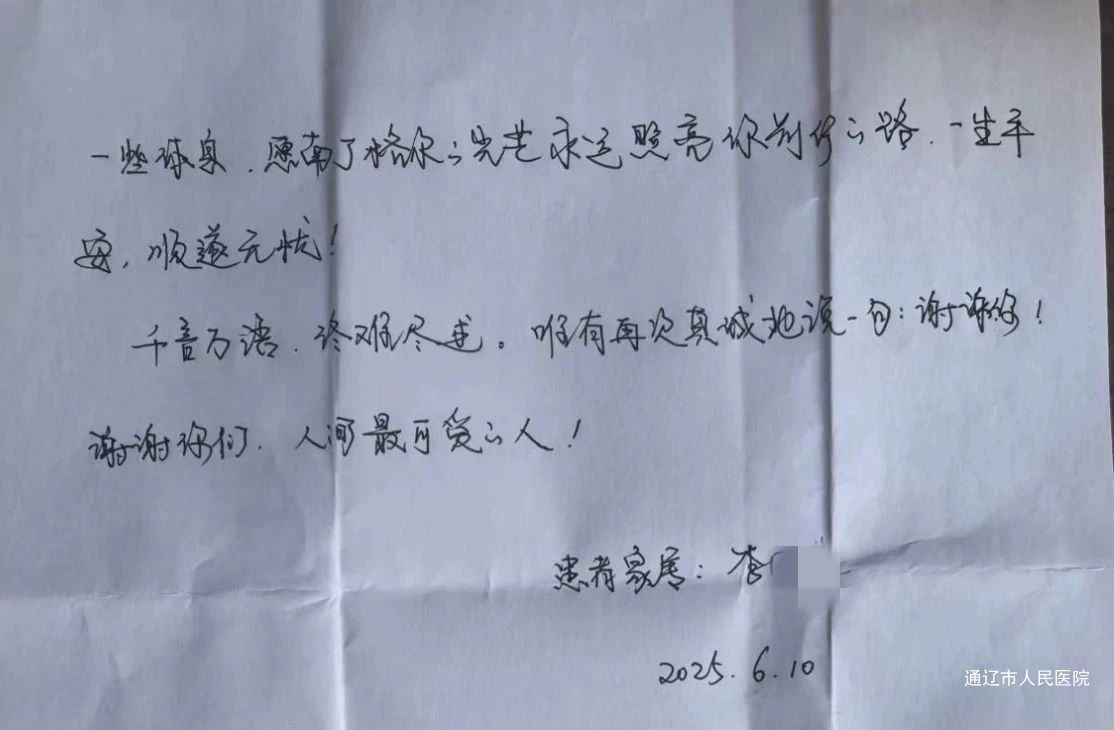 一些、愿南丁格尔的光芒永远照亮你前行的路、一生平
安,顺遂无忧!
千言万语、终难尽述。唯有再次真诚地说一句:谢谢你!
谢谢你们、人间最可爱的人!
患者家属:李
2025.6.10
通辽市人民医院